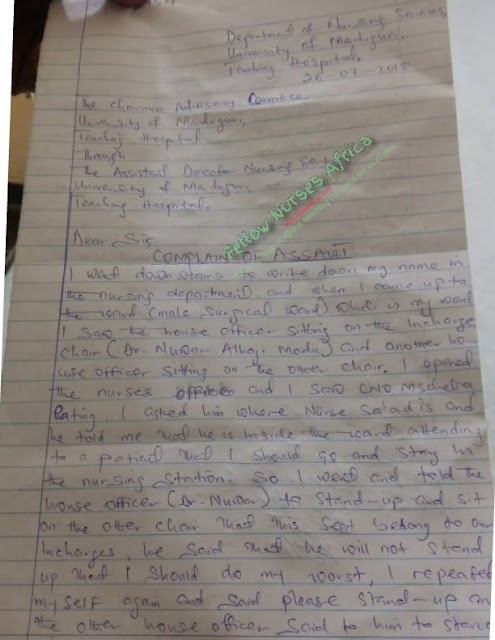 Department of Nursing Services,
University of Maiduguri,
Teaching Hospital.
26-07-2018
The Chairman Advisory Committee
University of Maiduguri,
Teaching Hospital
Through
The Assistant Director Nursing
University of Maiduguri,
Teaching Hospital.
Fellow Nurses Africa
Dear Sir,
COMPLAIN OF ASSAULT
I went down stairs to write down my name in
the nursing department, and when I came up to
the ward (male surgical ward) which is my ward
I saw the house officer sitting on the Incharge
chair (Dr. Nuwar Alhaji Modu) and another ho-
use officer sitting on the other chair. I opened
the nurses office and I saw CNO
eating, I asked him where Nurse Sa'ad is and
he told me that he is inside the ward attending
to a patient that I should go and stay in
the nursing station. So I went and told the
house officer (Dr. Nuwar) to stand-up and sit
on the other chair that this seat belong to our
Incharges, he said that he will not stand
up that I should do my worst, I repeated
myself again and said please stand-up and
the other house officer said to him to stand